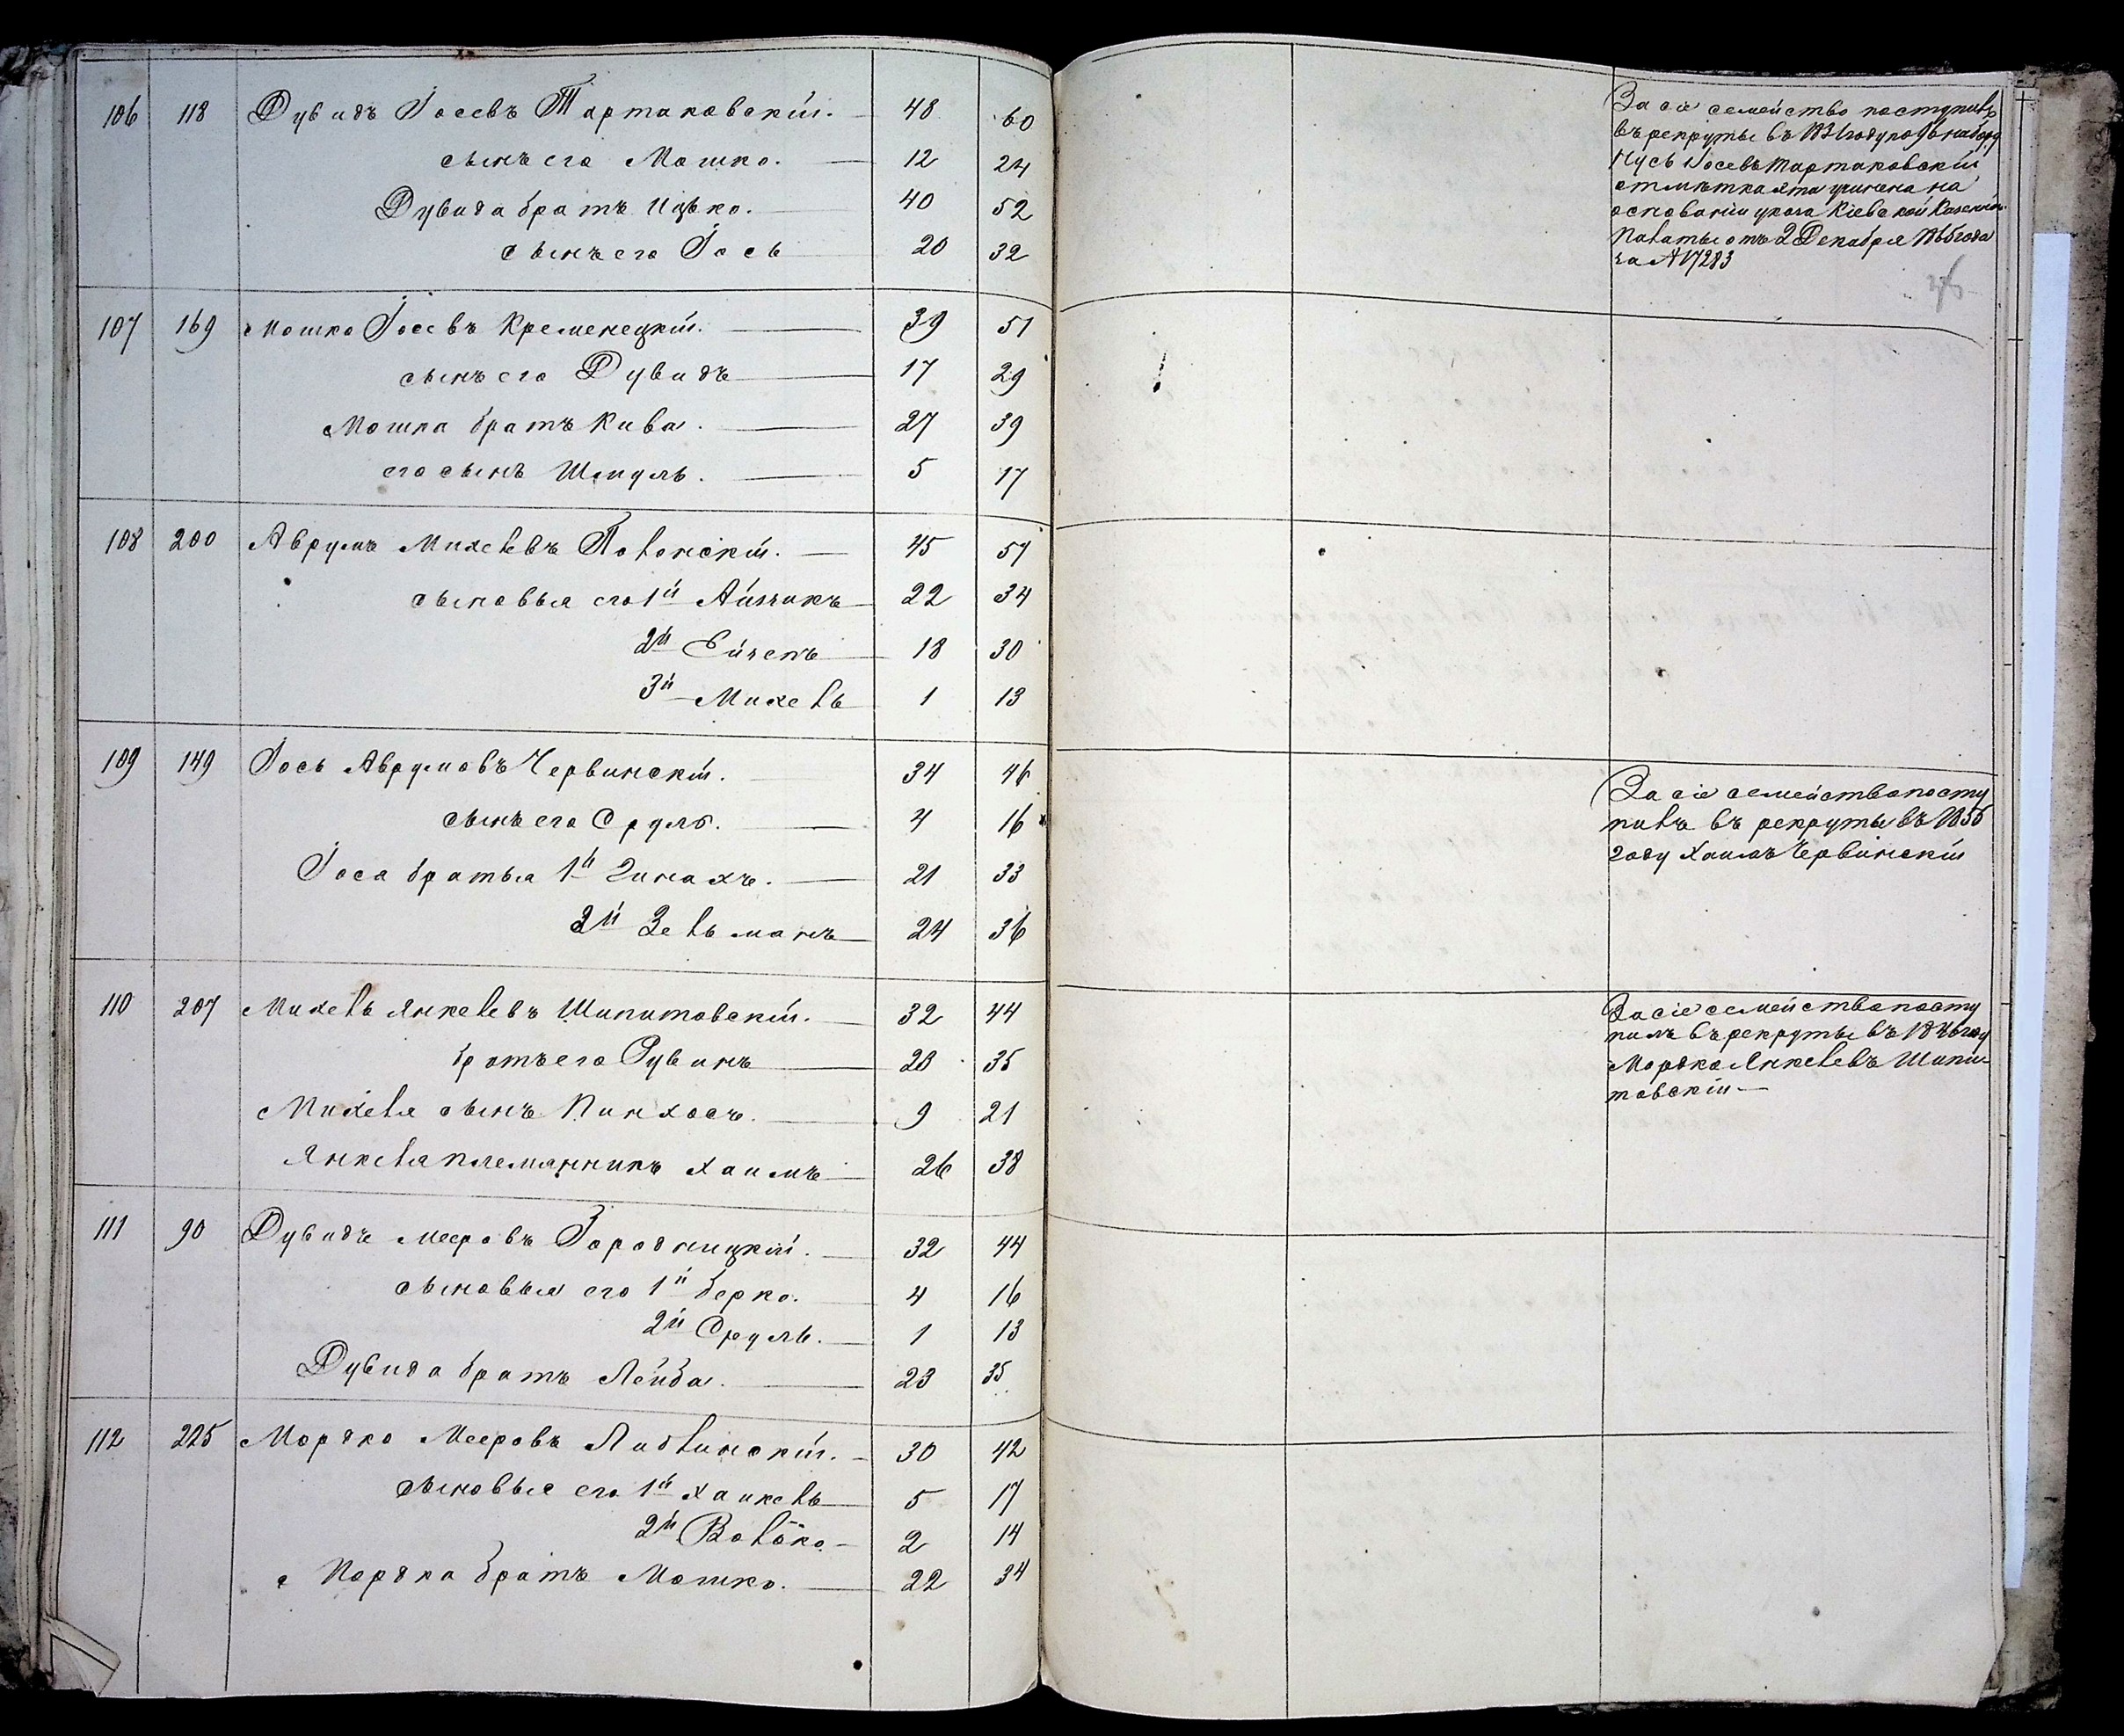 106 118 Дувидъ Іосевъ Тартаковскій. 48 60
сынъ его Мошко. 12 24
Дувида братъ Ицько. 40 52
сынъ его Іось 20 32
107 169 Мошко Іосевъ Кременецкій. 39 51
сынъ его Дувидъ 17 29
Мошка братъ Кива. 27 39
его сынъ Шмуль. 5 17
108 200 Аврумъ Михелевъ Полонскій. 45 57
сыновья его 1й Айзикъ 22 34
2й 18 30
3й Михель 1 13
109 149 Іось Аврумовъ Червинскій. 34 46
сынъ его Сруль. 4 16
Іося братья 1й Зинахъ. 21 33
2й Зельманъ 24 36
110 207 Михель Янкелевъ Шипитовскій. 32 44
братъ его Рувинъ 23 35
Михеля сынъ Пинхосъ. 9 21
Янкеля племянникъ Хаимъ 26 38
111 90 Дувидъ Мееровъ Городницкій. 32 44
сыновья его 1й Берко. 4 16
2й Сруль. 1 13
Дувида братъ Лейба. 23 35
112 225 Мордко Мееровъ Либлинскій. 30 42
сыновья его 1й Хаикель 5 17
2й Волько 2 14
Мордка братъ Мошко. 22 34
За сіе семейство поступилъ
въ рекруты въ году по 96 набору
Нусь Іосевъ Тартаковскій
отмѣтка эта учинена на
основаніи указа Кіевской Казенной
Палаты отъ 2 Декабря года
за № 17283
За сіе семейство посту
пилъ въ рекруты въ 1855
году Хаимъ Червинскій
За сіе семейство посту
пилъ въ рекруты въ 1846 году
Мордко Янкелевъ Шипи
товскій